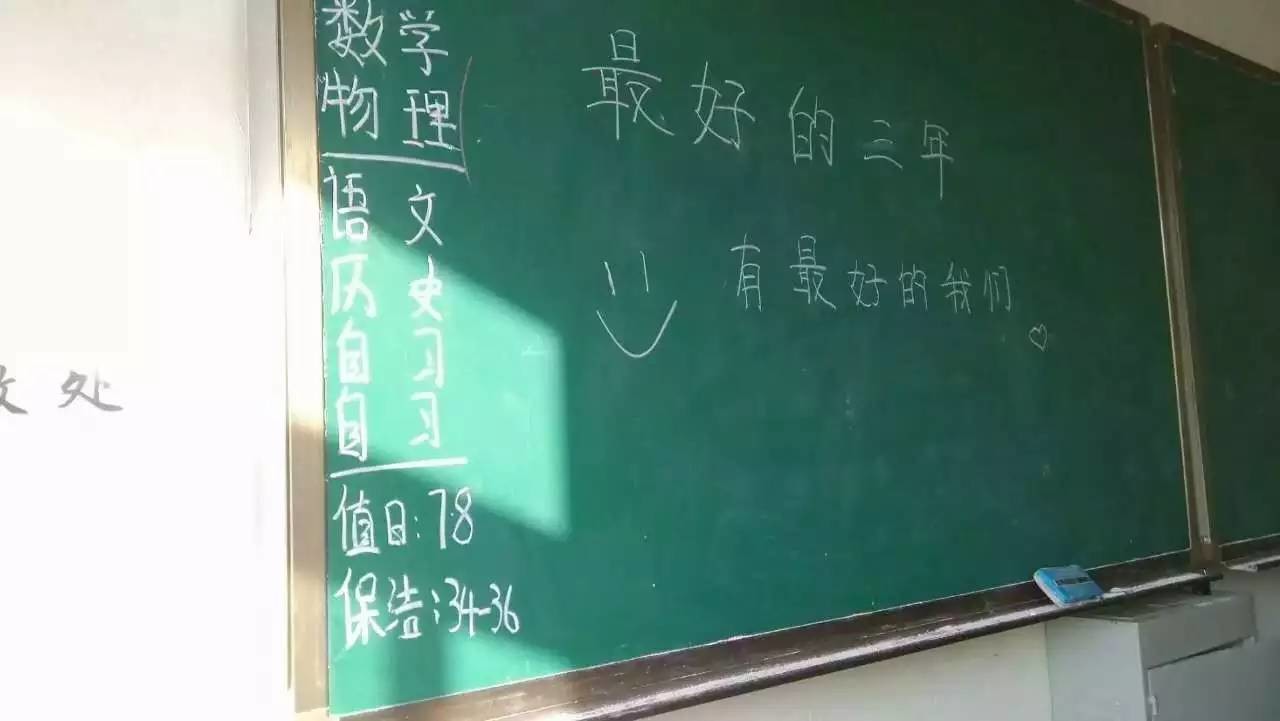 数学
物理
语文
历史
自习
自习
值日:78
保洁:34-36
最好的三年
有最好的我们
处